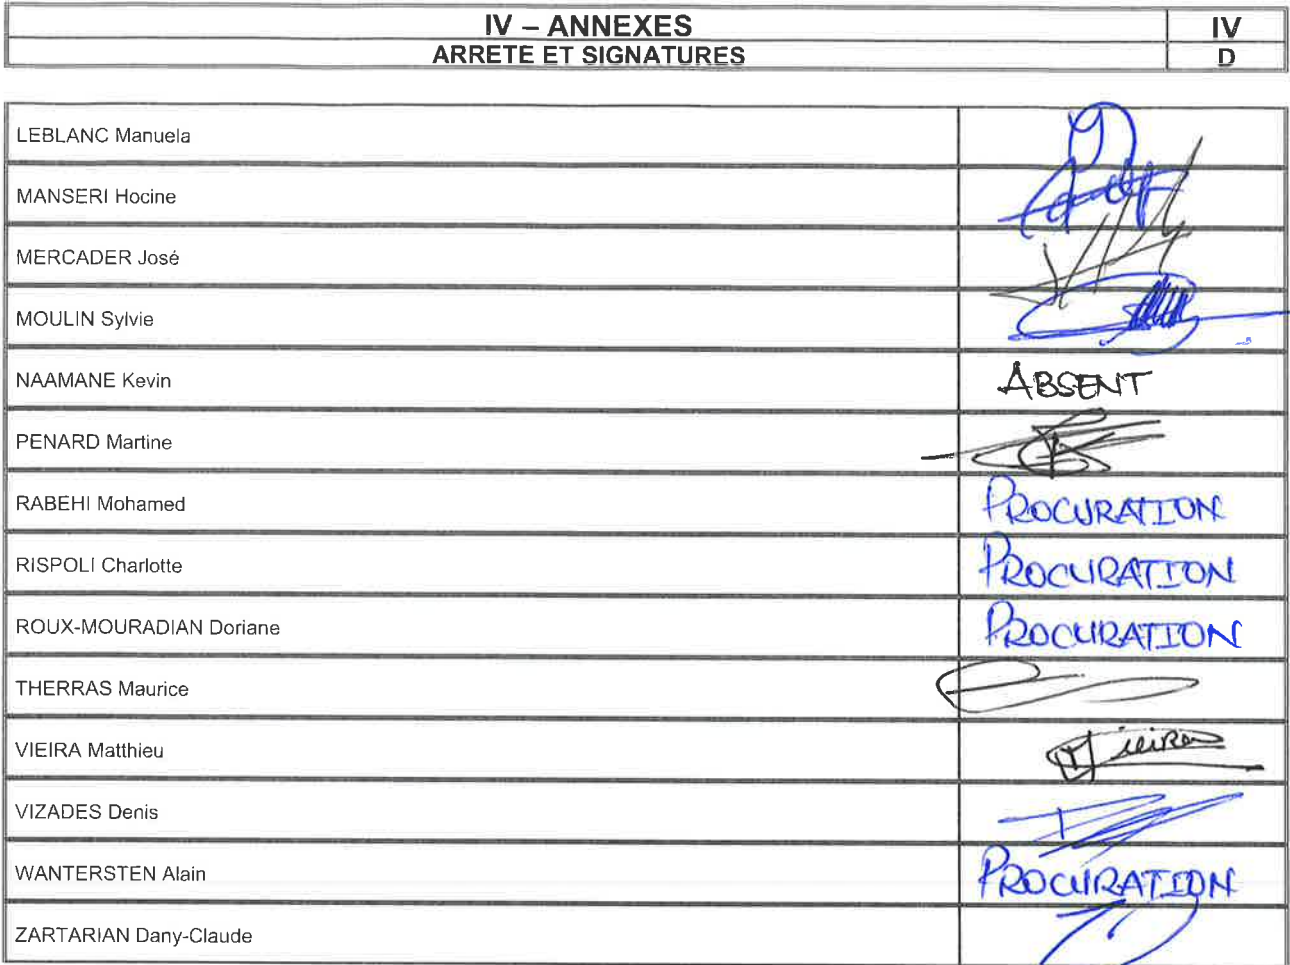 IV – ANNEXES IV
ARRETE ET SIGNATURES D
LEBLANC Manuela
MANSERI Hocine
MERCADER José
MOULIN Sylvie
NAAMANE Kevin ABSENT
PENARD Martine
RABEHI Mohamed PROCURATION
RISPOLI Charlotte PROCURATION
ROUX-MOURADIAN Doriane PROCURATION
THERRAS Maurice
VIEIRA Matthieu Vieira
VIZADES Denis
WANTERSTEN Alain PROCURATION
ZARTARIAN Dany-Claude